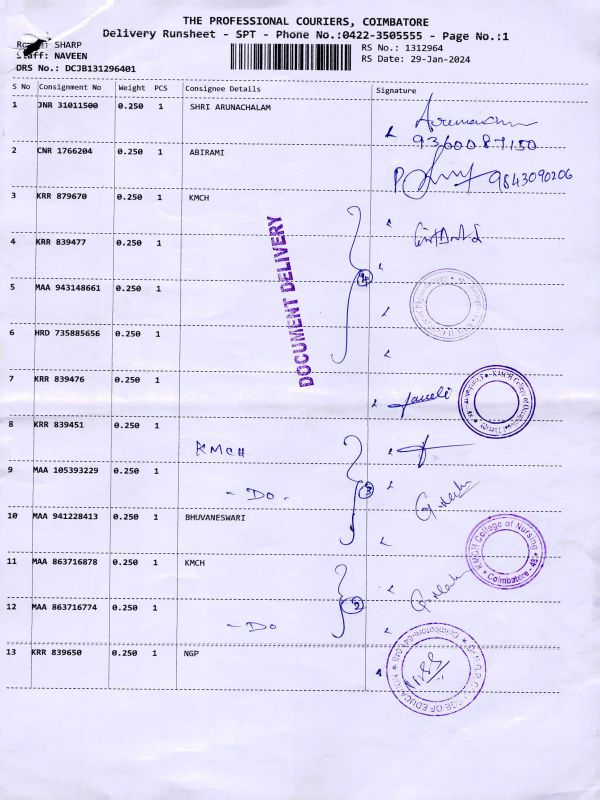 THE PROFESSIONAL COURIERS, COIMBATORE
Delivery Runsheet - SPT - Phone No.:0422-3505555 - Page No.:1
SHARP
RS No.: 1312964
Staff: NAVEEN
RS Date: 29-Jan-2024
DRS No.: DCJB131296401
S No Consignment No Weight PCS Consignee Details Signature
1 JNR 31011500 0.250 1 SHRI ARUNACHALAM
9360087150
2 CNR 1766204 0.250 1 ABIRAMI
9843090206
3 KRR 879670 0.250 1 KMCH
4 KRR 839477 0.250 1
4
5 MAA 943148661 0.250 1
DOCUMENT DELIVERY
6 HRD 735885656 0.250 1
7 KRR 839476 0.250 1
KMCH College of Occupational Therapy
8 KRR 839451 0.250 1
KMCH
9 MAA 105393229 0.250 1
- DO -
3
10 MAA 941228413 0.250 1 BHUVANESWARI
KMCH College of Nursing
Coimbatore - 48
11 MAA 863716878 0.250 1 KMCH
12 MAA 863716774 0.250 1
2
- DO
13 KRR 839650 0.250 1 NGP
COLLEGE OF EDUCATION